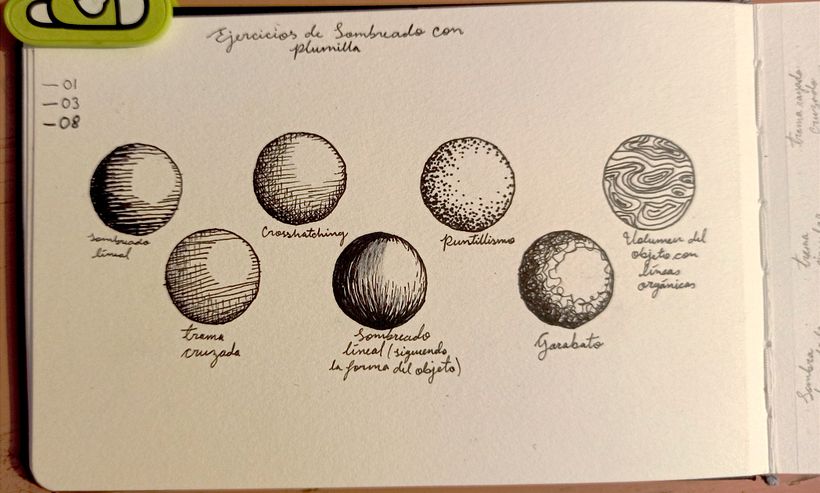 Ejercicios de Sombreado con
plumilla
— 01
— 03
— 08
Sombreado
lineal
Crosshatching
Puntillismo
Volumen del
objeto con
líneas
orgánicas
trama
cruzada
Sombreado
lineal (siguiendo
la forma del objeto)
Garabato
trama rayado
cruzado
trama
Sombra